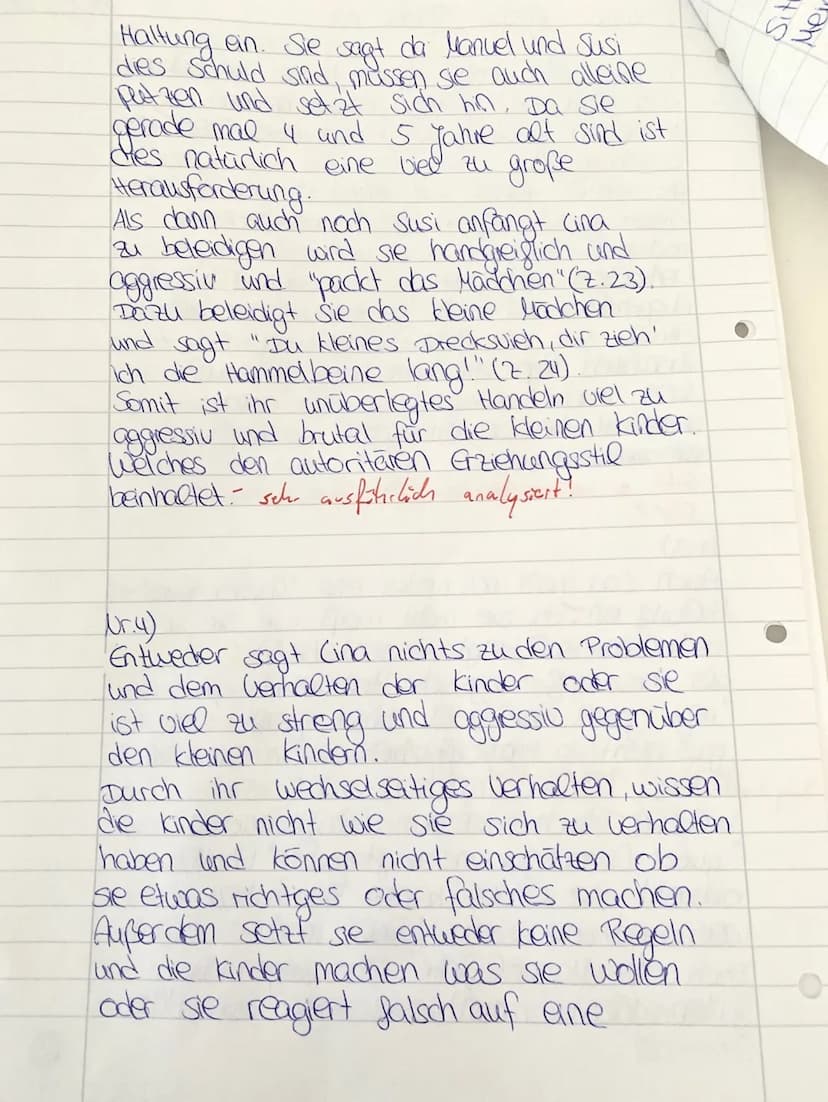 Haltung ein. Sie sagt da Manuel und Susi
dies Schuld sind, müssen sie auch alleine
putzen und setzt sich hin. Da sie
gerade mal 4 und 5 Jahre alt sind ist
dies natürlich eine viel zu große
Herausforderung.
Als dann auch noch Susi anfängt Lina
zu beleidigen wird sie handgreiflich und
aggressiv und "packt das Mädchen" (Z.23).
Dazu beleidigt sie das kleine Mädchen
und sagt "Du kleines Drecksvieh, dir zieh'
ich die Hammelbeine lang!" (Z. 24).
Somit ist ihr unüberlegtes Handeln viel zu
aggressiv und brutal für die kleinen Kinder.
Welches den autoritären Erziehungsstil
beinhaltet. - sehr ausführlich analysiert!
Nr.4)
Entweder sagt Lina nichts zu den Problemen
und dem Verhalten der Kinder oder sie
ist viel zu streng und aggressiv gegenüber
den kleinen Kindern.
Durch ihr wechselseitiges Verhalten, wissen
die Kinder nicht wie sie sich zu verhalten
haben und können nicht einschätzen ob
sie etwas richtiges oder falsches machen.
Außerdem setzt sie entweder keine Regeln
und die Kinder machen was sie wollen
oder sie reagiert falsch auf eine